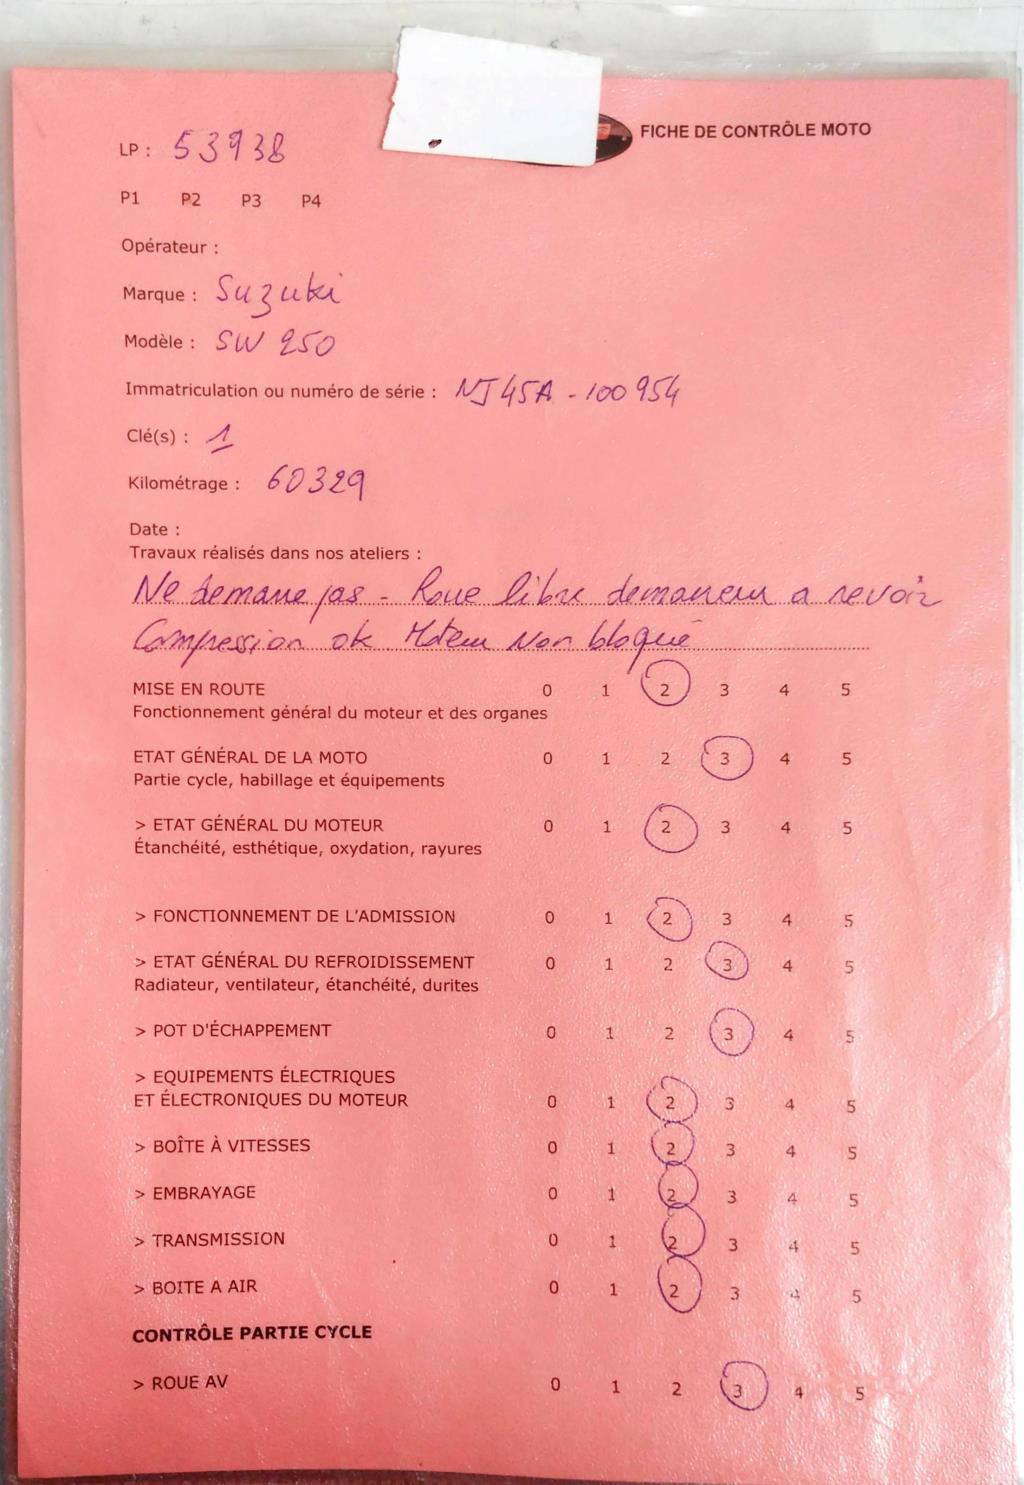 FICHE DE CONTRÔLE MOTO
LP : 53938
P1 P2 P3 P4
Opérateur :
Marque : Suzuki
Modèle : SW 250
Immatriculation ou numéro de série : NJ45A - 100954
Clé(s) : 1
Kilométrage : 60329
Date :
Travaux réalisés dans nos ateliers :
Ne demarre pas - Roue libre demarreur a revoir
Compression ok. Moteur Non bloqué
MISE EN ROUTE 0 1 2 3 4 5
Fonctionnement général du moteur et des organes
ETAT GÉNÉRAL DE LA MOTO 0 1 2 3 4 5
Partie cycle, habillage et équipements
> ETAT GÉNÉRAL DU MOTEUR 0 1 2 3 4 5
Étanchéité, esthétique, oxydation, rayures
> FONCTIONNEMENT DE L'ADMISSION 0 1 2 3 4 5
> ETAT GÉNÉRAL DU REFROIDISSEMENT 0 1 2 3 4 5
Radiateur, ventilateur, étanchéité, durites
> POT D'ÉCHAPPEMENT 0 1 2 3 4 5
> EQUIPEMENTS ÉLECTRIQUES
ET ÉLECTRONIQUES DU MOTEUR 0 1 2 3 4 5
> BOÎTE À VITESSES 0 1 2 3 4 5
> EMBRAYAGE 0 1 2 3 4 5
> TRANSMISSION 0 1 2 3 4 5
> BOITE A AIR 0 1 2 3 4 5
CONTRÔLE PARTIE CYCLE
> ROUE AV 0 1 2 3 4 5